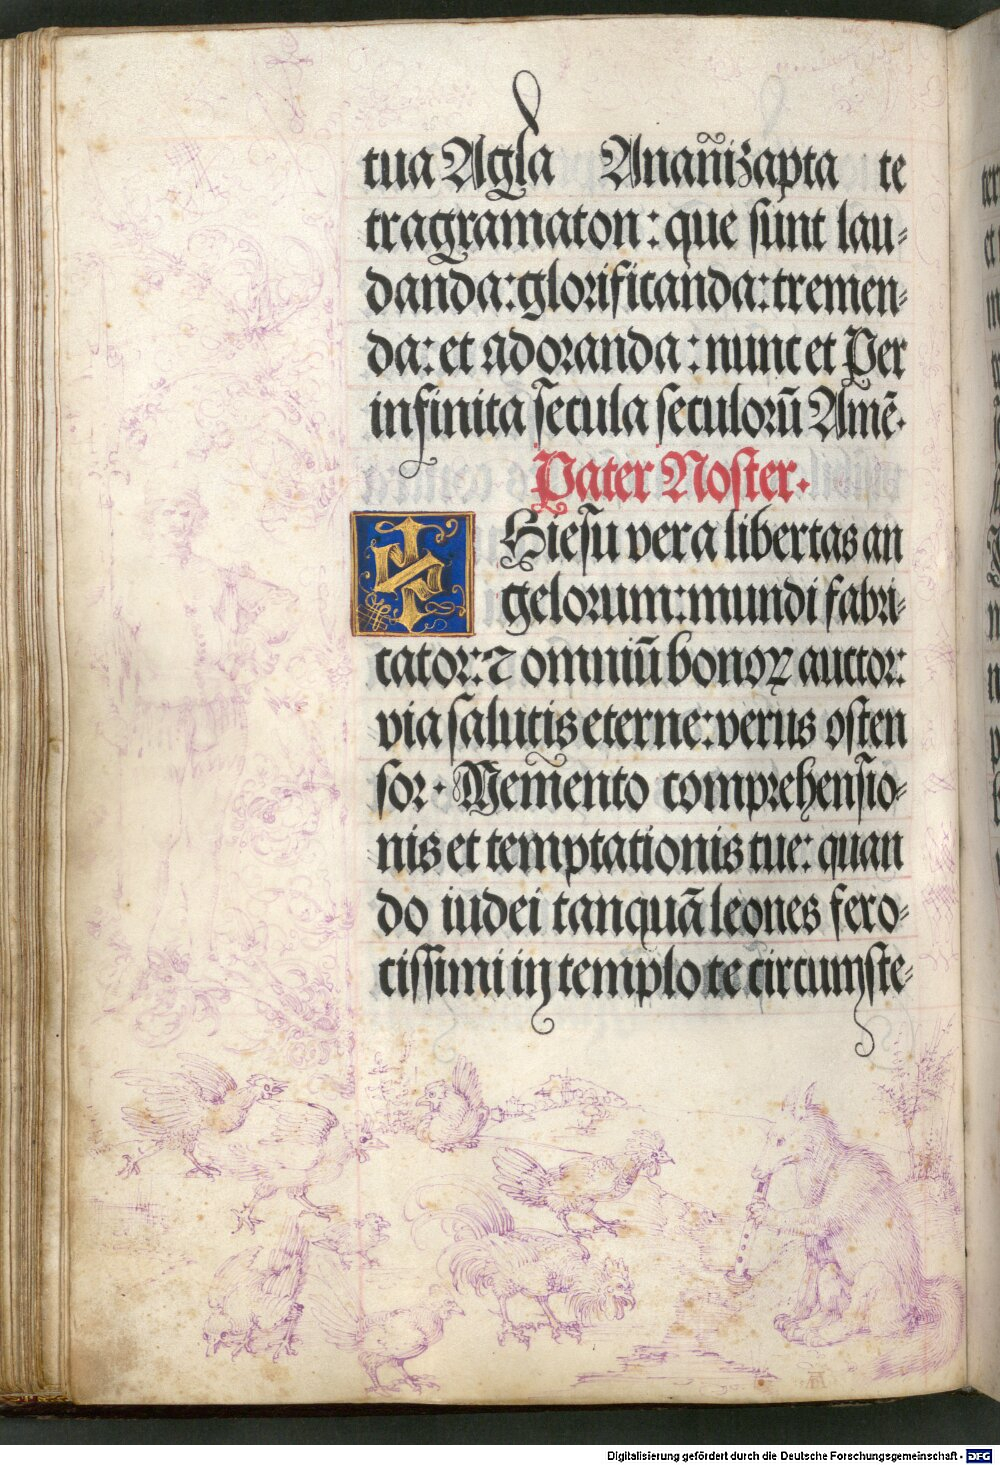 tua Agla Anañizapta te
tragramaton: que sunt lau-
danda: glorificanda: tremen-
da: et adoranda: nunc et Per
infinita secula seculorū Amē.
Pater Noster.
O Hiesu vera libertas an
gelorum: mundi fabri-
cator: ⁊ omniū bonoꝝ auctor:
via salutis eterne: verus osten
sor. Memento comprehensio-
nis et temptationis tue: quan
do iudei tanquā leones fero-
cissimi in templo te circumste-
Digitalisierung gefördert durch die Deutsche Forschungsgemeinschaft - DFG